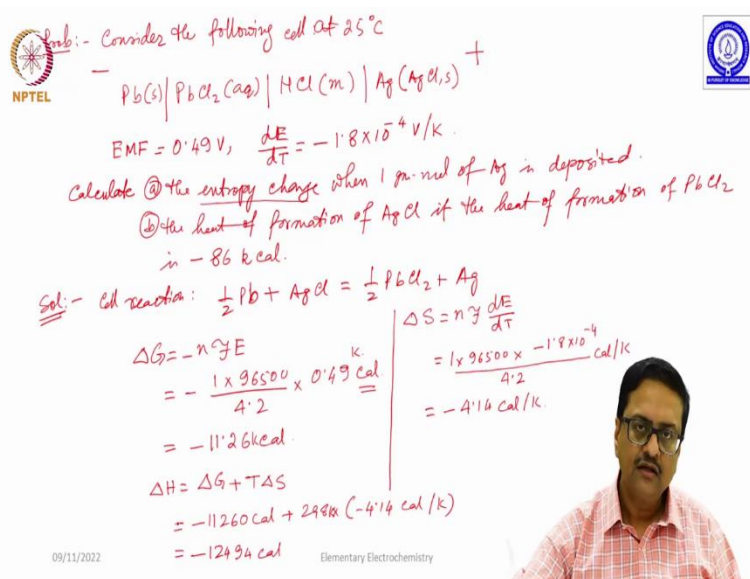 Prob:- Consider the following cell at 25°C
NPTEL
– Pb(s)|PbCl₂(aq)|HCl(m)|Ag(AgCl,s) +
EMF = 0.49 V, dE/dT = -1.8×10⁻⁴ V/K.
Calculate ⓐ the entropy change when 1 gm.mol of Ag is deposited.
ⓑ the heat of formation of AgCl if the heat of formation of PbCl₂
is - 86 kcal.
Sol:- Cell reaction: ½ Pb + AgCl = ½ PbCl₂ + Ag
ΔG = -nƑE
= - (1 × 96500)/4.2 × 0.49 cal. K
= -11.26 kcal.
ΔH = ΔG + TΔS
= -11260 Cal + 298K × (-4.14 Cal/K)
= -12494 cal
ΔS = nƑ dE/dT
= (1 × 96500 × -1.8×10⁻⁴)/4.2 Cal/K
= -4.14 Cal/K.
09/11/2022
Elementary Electrochemistry